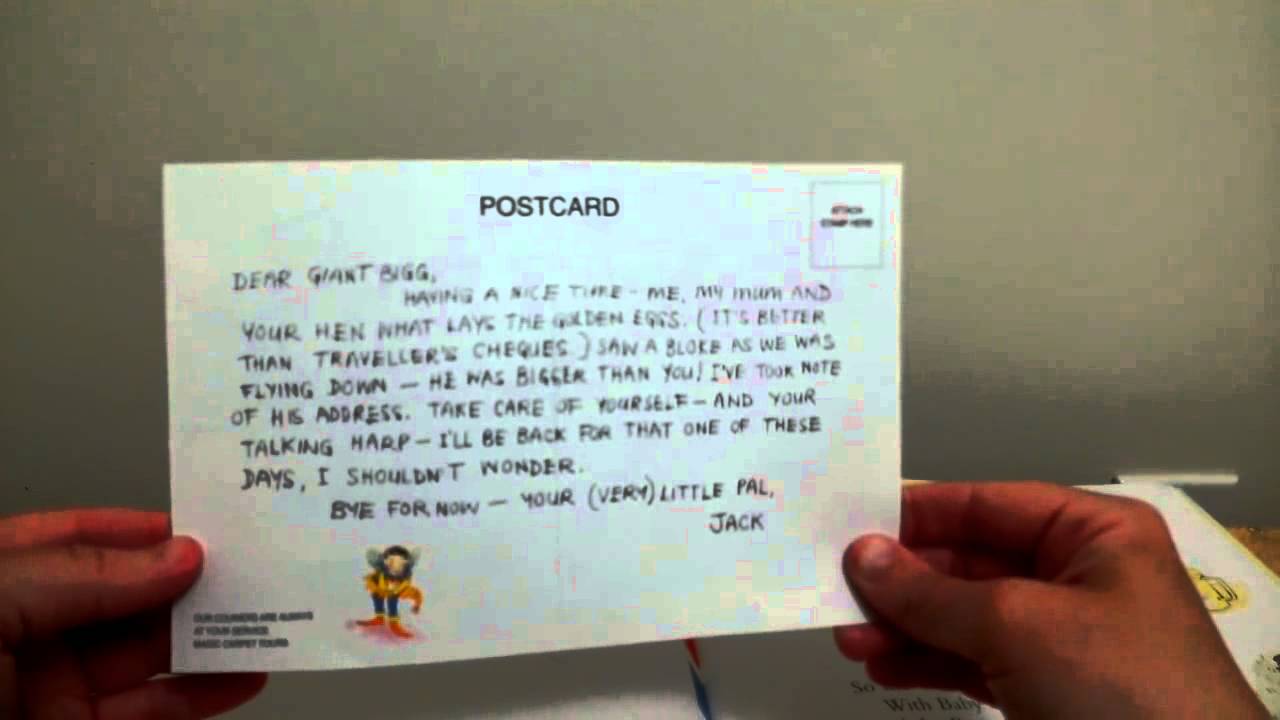 POSTCARD
ATTACH
STAMP HERE
DEAR GIANT BIGG,
HAVING A NICE TIME - ME, MY MUM AND
YOUR HEN WHAT LAYS THE GOLDEN EGGS. (IT'S BETTER
THAN TRAVELLER'S CHEQUES.) SAW A BLOKE AS WE WAS
FLYING DOWN — HE WAS BIGGER THAN YOU! I'VE TOOK NOTE
OF HIS ADDRESS. TAKE CARE OF YOURSELF - AND YOUR
TALKING HARP - I'LL BE BACK FOR THAT ONE OF THESE
DAYS, I SHOULDN'T WONDER.
BYE FOR NOW — YOUR (VERY) LITTLE PAL,
JACK
OUR COURIERS ARE ALWAYS
AT YOUR SERVICE.
MAGIC CARPET TOURS
So
With Baby